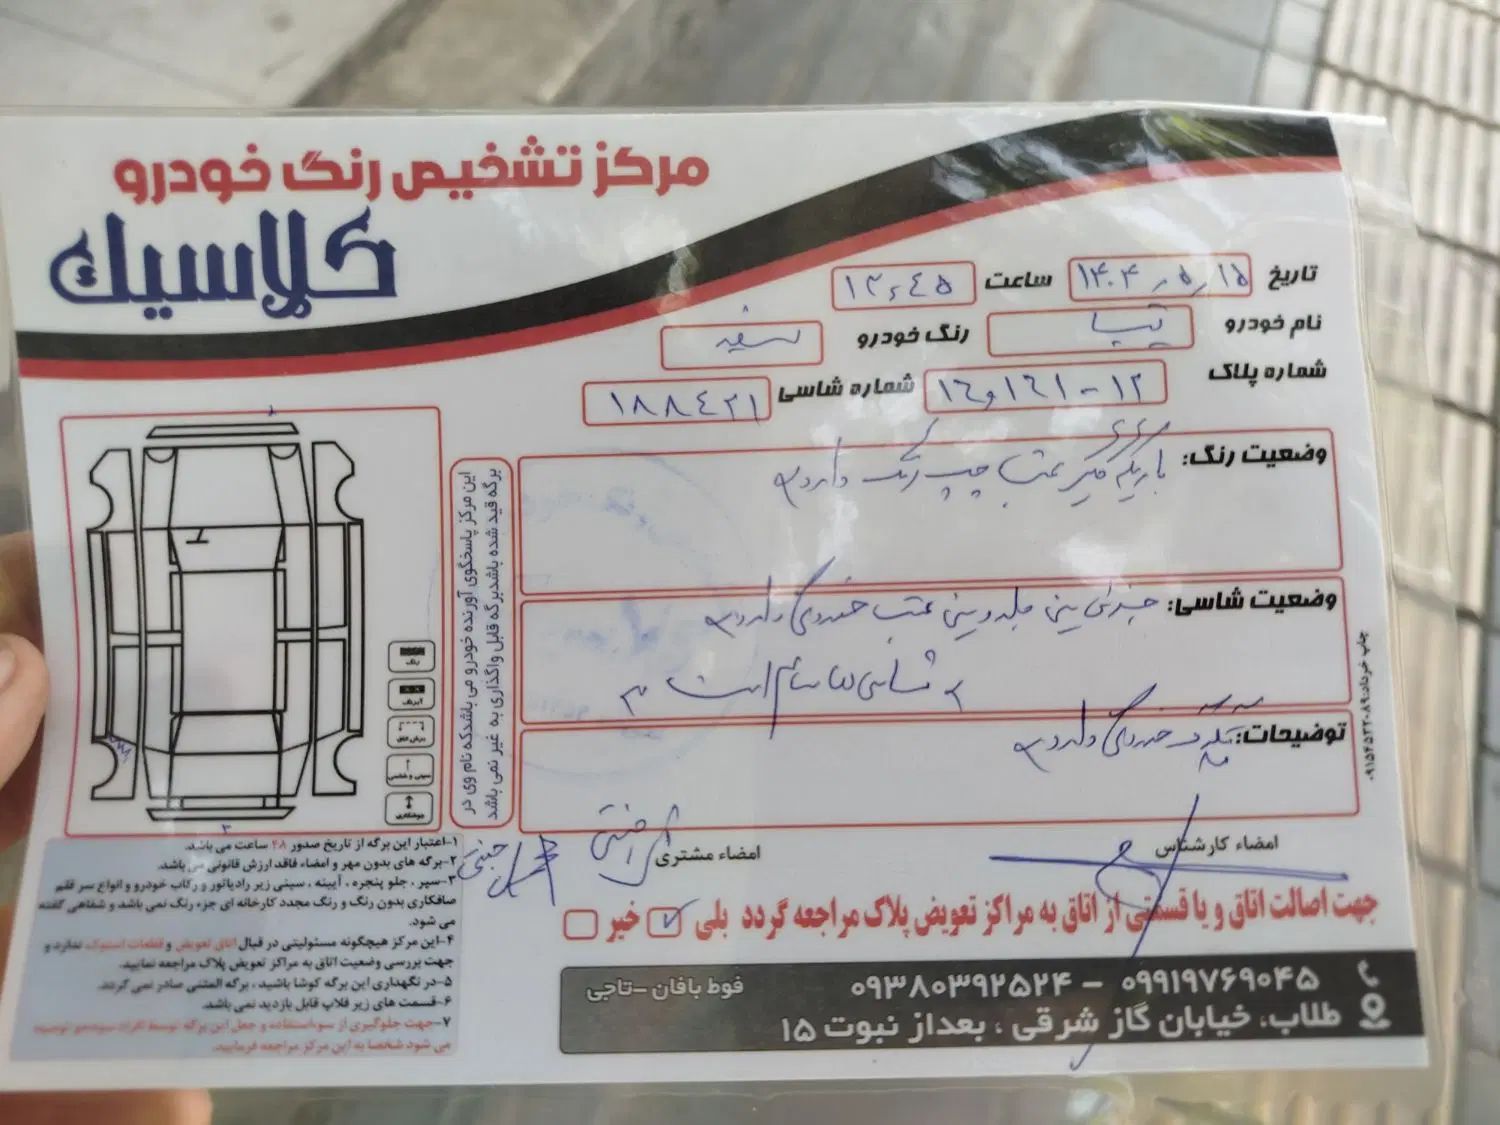 مرکز تشخیص رنگ خودرو
کلاسیک
تاریخ ۱۴۰۴٫۵٫۱۵ ساعت ۱۲٫۴۵
نام خودرو تیبا رنگ خودرو سفید
شماره پلاک ۱۲ - ۱۶۱ و ۱۶ شماره شاسی ۱۸۸۴۲۱
وضعیت رنگ: باریکه گلگیر عقب چپ رنگ دارد
وضعیت شاسی: سینی جلو و سینی عقب خوردگی دارد
شاسی ها سالم است
توضیحات: خوردگی دارد
این مرکز پاسخگوی آورنده خودرو می باشد که نام وی در
برگه قید شده باشد برگه قابل واگذاری به غیر نمی باشد
رنگ
سینی و شاسی
جوشکاری
امضاء کارشناس
امضاء مشتری
جهت اصالت اتاق و یا قسمتی از اتاق به مراکز تعویض پلاک مراجعه گردد بلی ✓ خیر
۱-اعتبار این برگه از تاریخ صدور ۴۸ ساعت می باشد.
۲-برگه های بدون مهر و امضاء فاقد ارزش قانونی می باشد.
۳-سپر ، جلو پنجره ، آیینه ، سینی زیر رادیاتور و رکاب خودرو و انواع سر قلم
صافکاری بدون رنگ و رنگ مجدد کارخانه ای جزء رنگ نمی باشد و شفاهی گفته
می شود.
۴-این مرکز هیچگونه مسئولیتی در قبال اتاق تعویض و قطعات استوک ندارد و
جهت بررسی وضعیت اتاق به مراکز تعویض پلاک مراجعه نمایید.
۵-در نگهداری این برگه کوشا باشید ، برگه المثنی صادر نمی گردد.
۶-قسمت های زیر فلاپ قابل بازدید نمی باشد.
۷-جهت جلوگیری از سوءاستفاده و جعل این برگه توسط افراد سودجو توصیه
می شود شخصا به این مرکز مراجعه فرمایید.
۰۹۹۱۹۷۶۹۰۴۵ – ۰۹۳۸۰۳۹۲۵۲۴ فوط بافان -تاجی
طلاب، خیابان گاز شرقی ، بعداز نبوت ۱۵
چاپ خرداد:۰۹۱۵۴۵۲۲۰۸۹